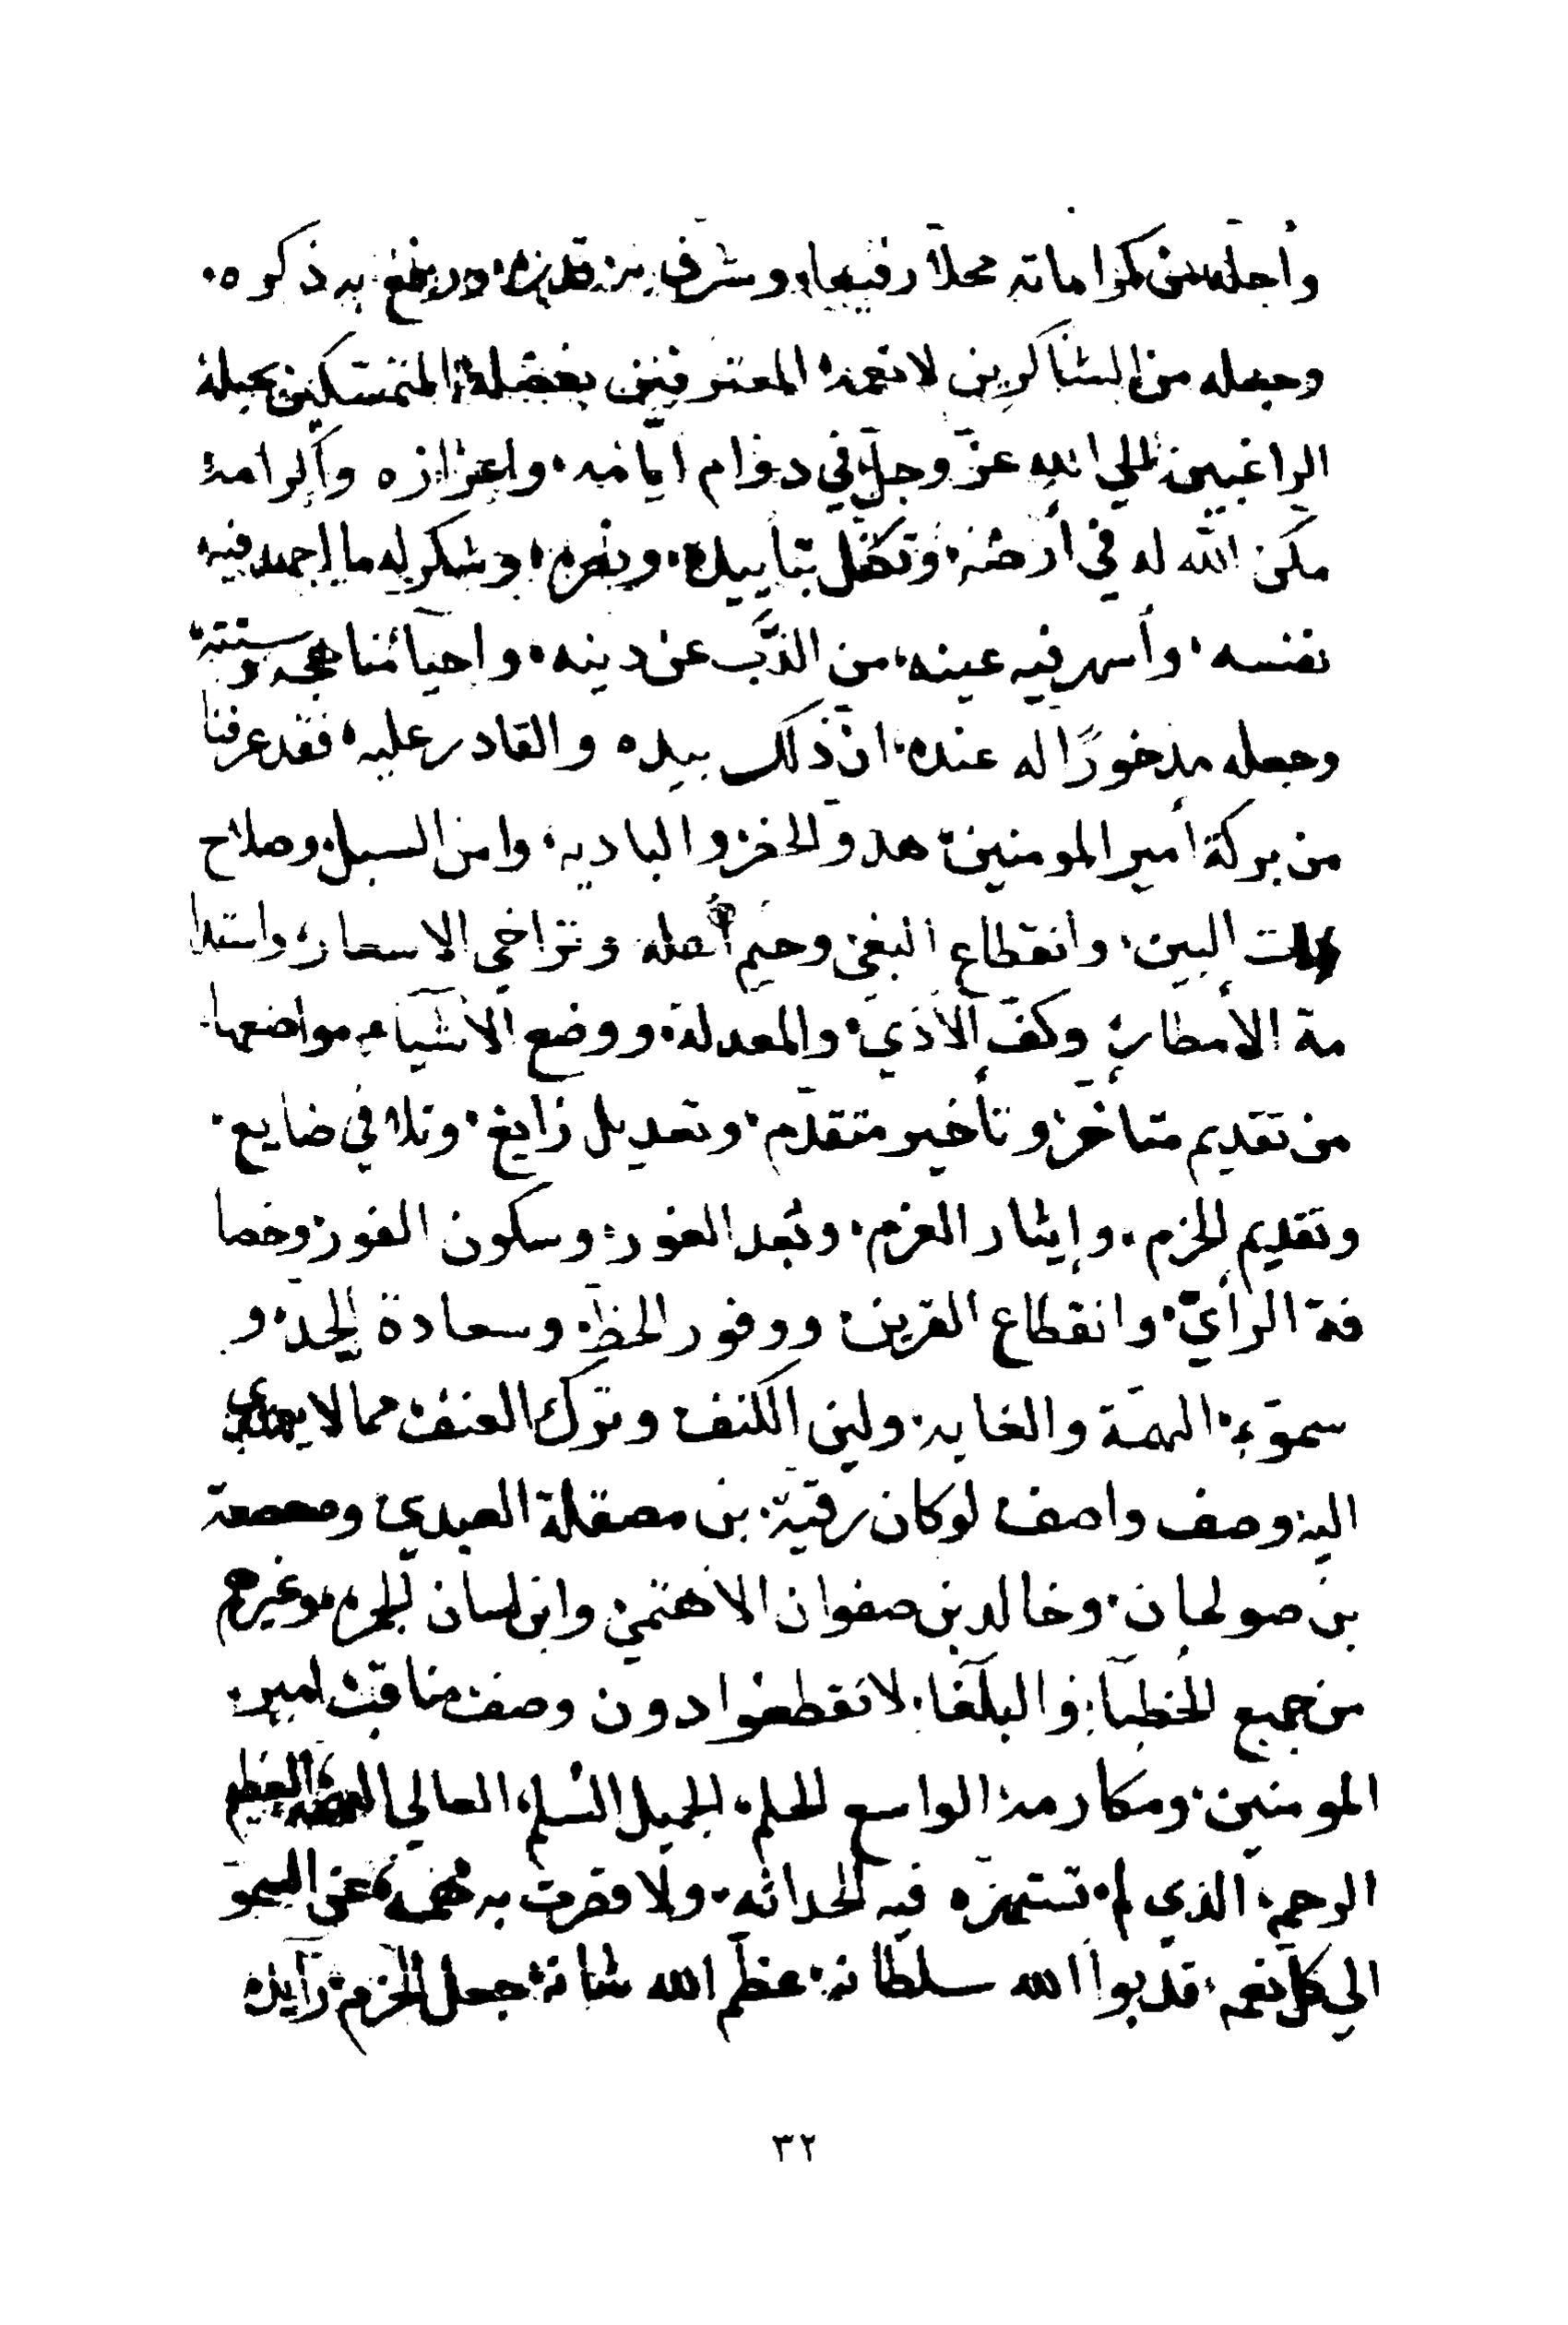 وأحله من كراماته محلاّ رفيعا، وشرف به قدره، ورفع به ذكره.
وجعله من الشاكرين لانعمه، المعترفين بفضله، المتمسكين بحبله
الراغبين إلي الله عزّ وجلّ في دوام أيامه، وإعزازه وإكرامه
مكن الله له في أرضه، وتكفّل بتأييده، ونصره، وشكر له ما اجهد فيه
نفسه، وأسهر فيه عينه، من الذبّ عن دينه، واحيآ مناهجه وسننه،
وجعله مذخورًا له عنده، انّ ذلك بيده والقادر عليه، فقد عرفنا
من بركة أمير المومنين، هدوّ الحضر والباديه، وامن السبل، وصلاح
ذات البين، وانقطاع البغي وحيم أهله وتراخي الاسعار، واستدا
مة الأمطار، وكفّ الأذي، والمعدلة، ووضع الأشيآء مواضعها
من تقديم متأخر، وتأخير متقدّم، وتعديل زايغ، وتلافي ضايع.
وتقديم الحزم. وإيثار العزم، وبُعد الغور، وسكون الفور، وحصا
فة الرأي، وانقطاع القرين، ووفور الحظّ، وسعادة الجدّ، و
سموّ الهمّة والغايه، ولين الكنف، وترك العنف مما لا يهتدي
اليه وصف واصف لو كان رقيّة بن مصقلة العبدي وصعصعة
بن صولحان، وخالد بن صفوان الاهتمي، وابن لسان الحمره وغيرهم
من جميع الخطبآ، والبلغآ، لانقطعوا دون وصف مناقب امير
المومنين، ومكارمه الواسع الحلم، الجميل السلم، العالي العظيم
الرحمه، الذي لم تستهزه فيه الحداثه، ولا قصرت به همّة عن السموّ
الي كل نعمه، قد بوأ الله سلطانه، عظّم الله شانه، جعل الحزم رآيده
٣٢